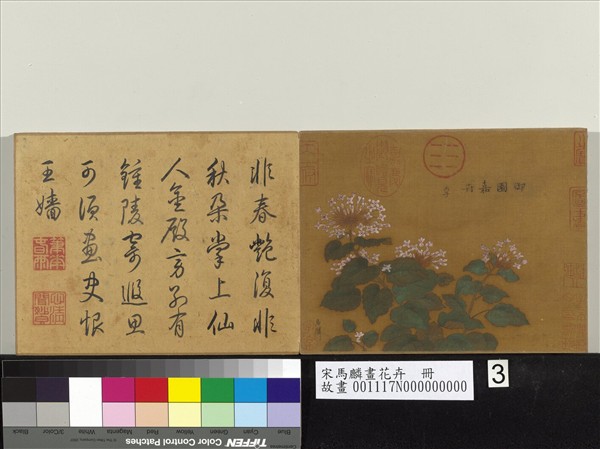 非春艷復非
秋朵掌上仙
人金殿方別有
鍾陵寄遐思
可須畫史恨
王嬙
御園嘉卉
宋馬麟畫花卉 冊
故畫 001117N000000000
3
Blue Cyan Green Yellow Red Magenta White 3/Color Black
TIFFEN Color Control Patches